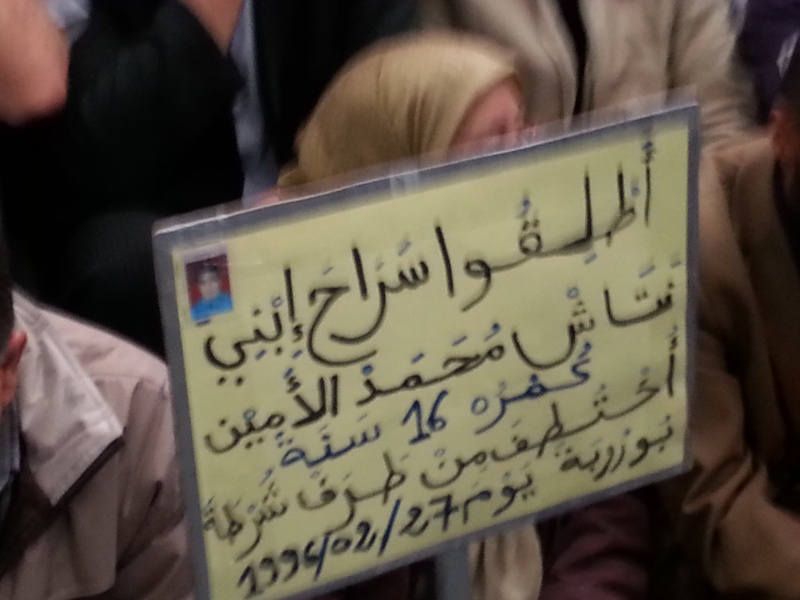 أَطْلِقُوا سَرَاحَ إِبْنِي
فَتَاشْ مُحَمَدْ الأَمِيْن
عُمْرُهُ 16 سَنَة
أُخْتُطِفَ مِنْ طَرَفْ شُرْطَة
بُوزريعة يَوْمَ 1996/02/27